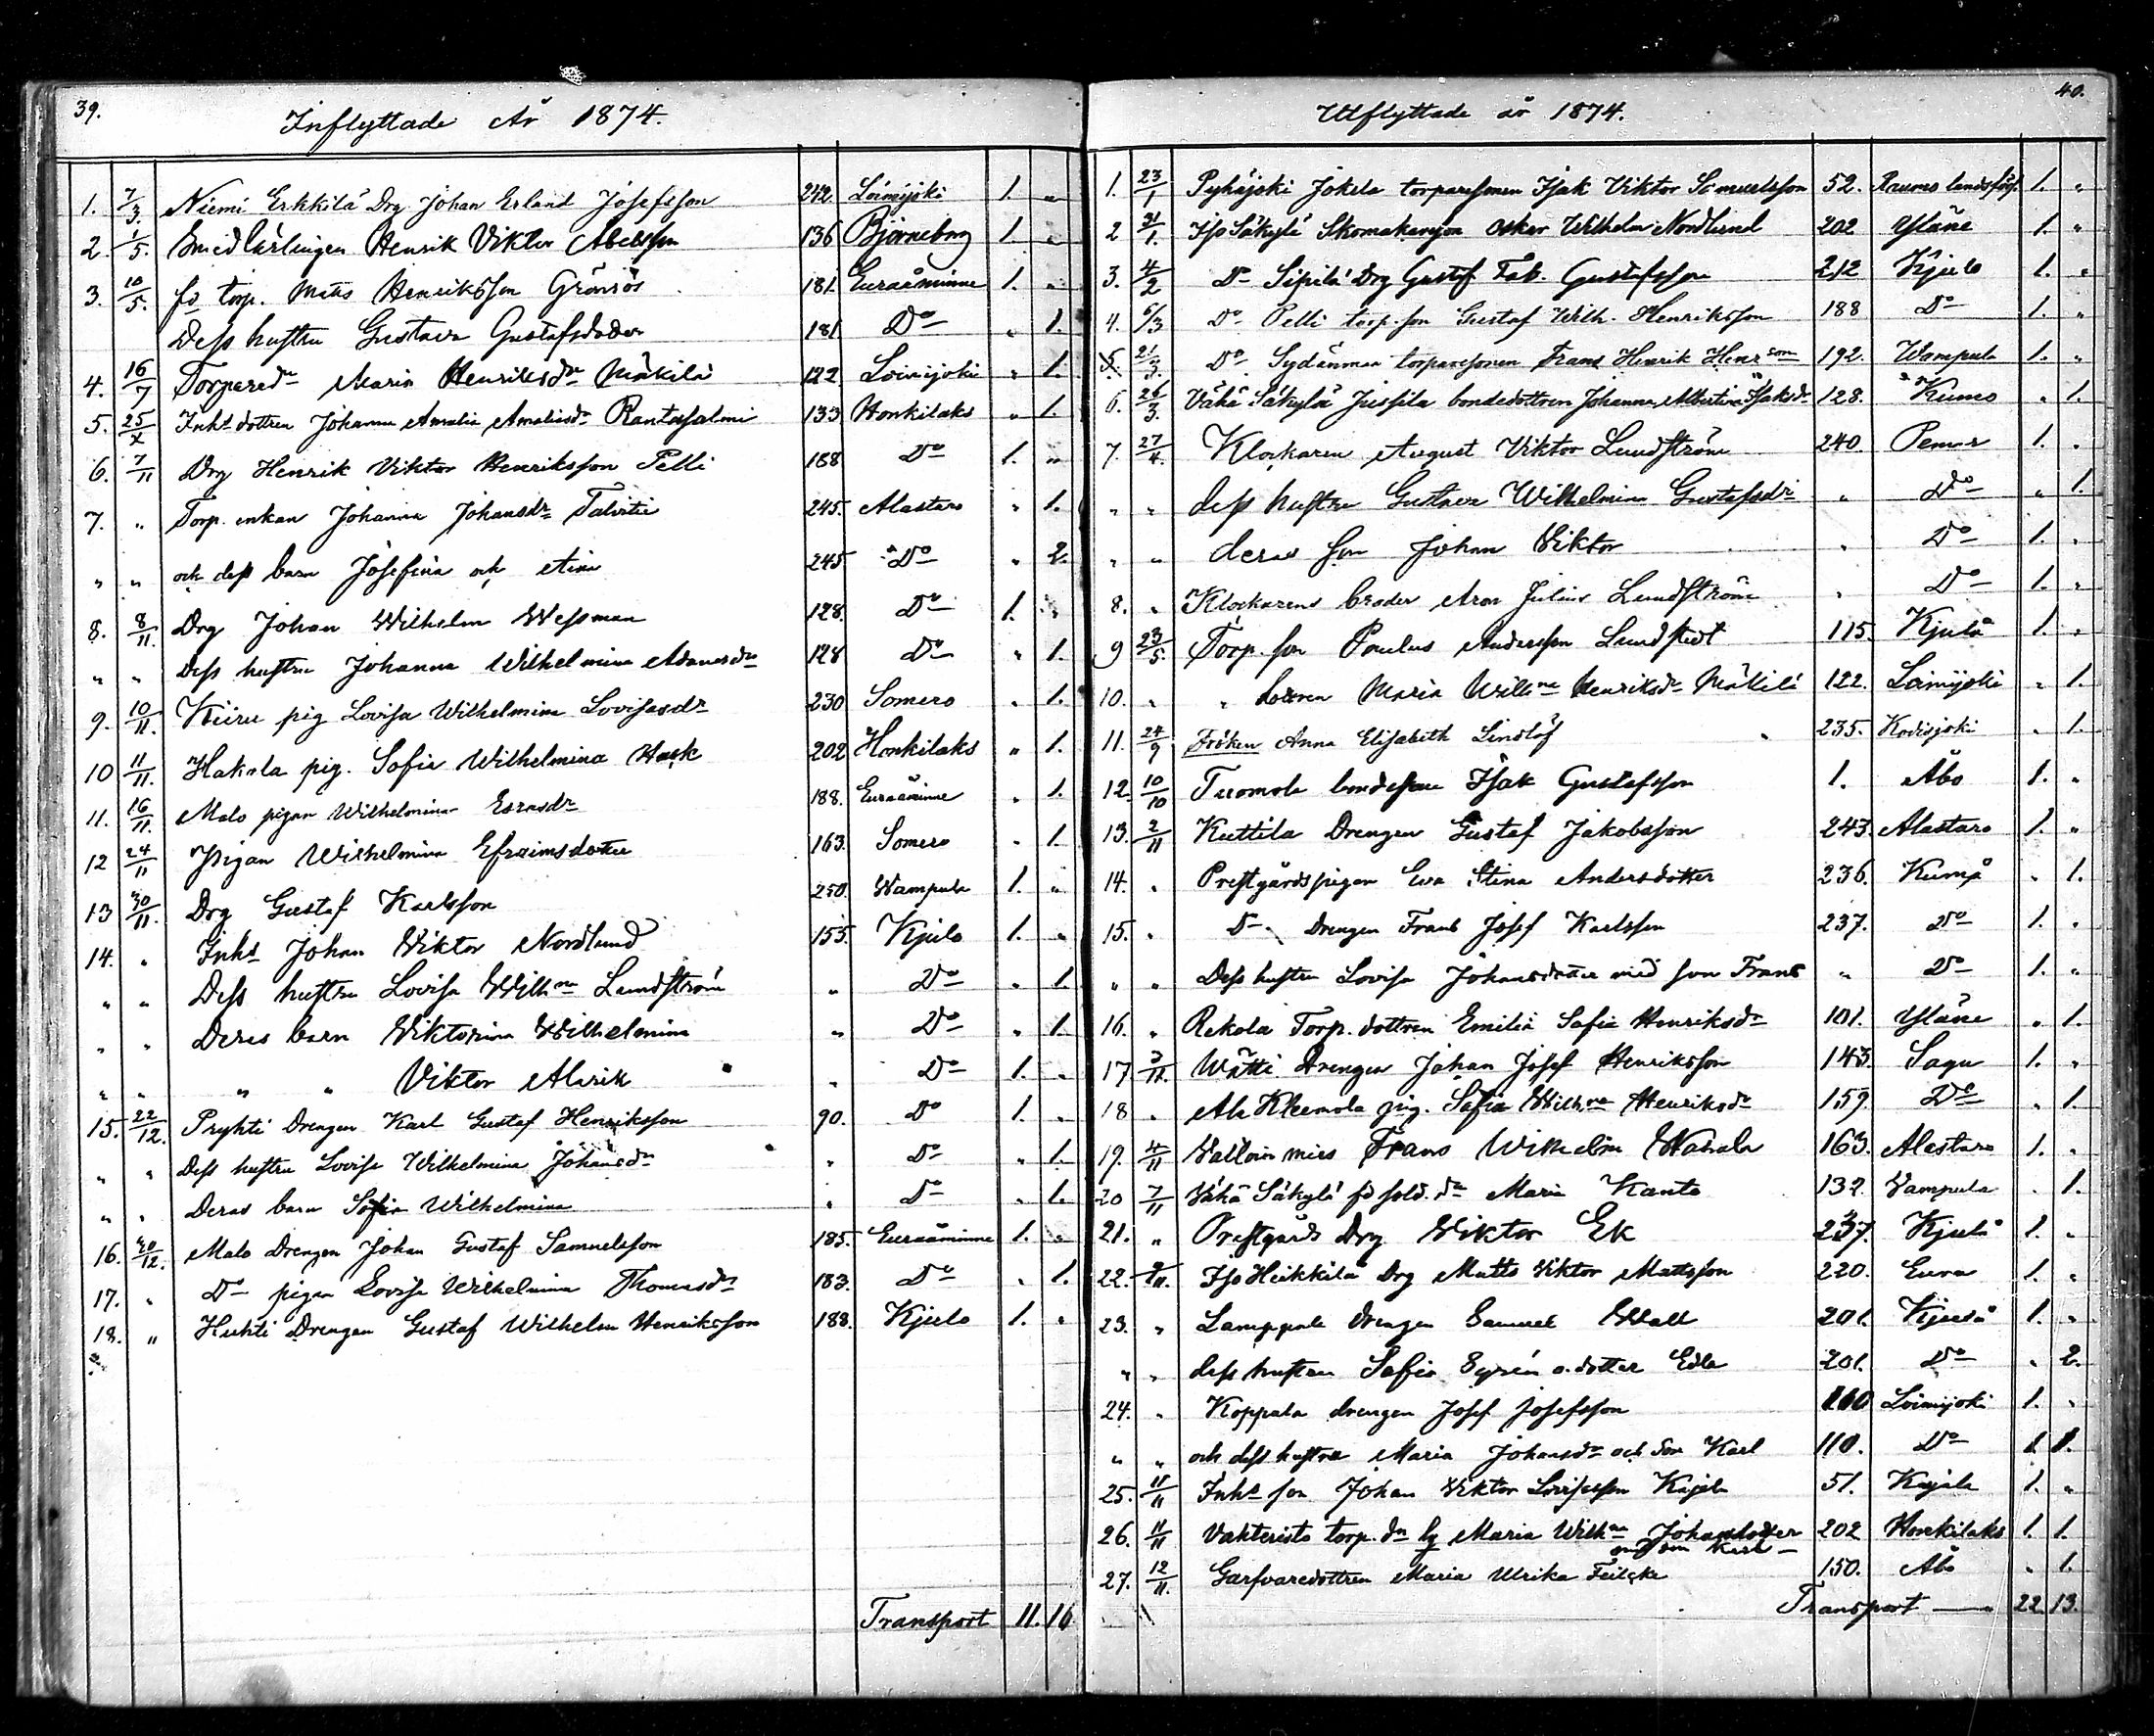 39.
Inflyttade År 1874.
1. 7/3. Niemi Erkkilä Drg Johan Erland Josefsson 242 Loimijoki 1. "
2. 1/5. Smedlärlingen Henrik Viktor Abelsson 136 Björneborg 1. "
3. 10/5. fd torp. Matts Henriksson Grönroos 181. Euraåminne 1. "
Dess hustru Gustava Gustafsdotter 181 Do " 1.
4. 16/7 Torpared:r Maria Henriksdr Mäkilä 122 Loimijoki " 1.
5. 25/X Inhs dottren Johanna Amalia Amaliasdr Rantasalmi 133 Honkilaks " 1.
6. 7/11 Drg Henrik Viktor Henriksson Pelli 188 Do 1. "
7. " Torp. enkan Johanna Johansdr Talvitie 245. Alastaro " 1.
" " och dess barn Josefina och Stina 245 Do " 2.
8. 8/11. Drg Johan Wilhelm Wessman 128. Do 1. "
" " Dess hustru Johanna Wilhelmina Adamsdr 128 Do " 1.
9. 10/11. Kiiru pig Lovisa Wilhelmina Lovisasdr 230 Somero " 1.
10 11/11. Hakala pig. Sofia Wilhelmina Hack 202 Honkilaks " 1.
11. 16/11. Malo pigan Wilhelmina Esrasdr 188. Euraåminne " 1.
12 24/11 Pigan Wilhelmina Efraimsdotter 163. Somero " 1.
13 30/11. Drg Gustaf Karlsson 250. Wampula 1. "
14. " Inhs Johan Viktor Nordlund 155. Kjulo 1. "
" " Dess hustru Lovisa Wilhna Lundström " Do " 1.
" " Deras barn Viktorina Wilhelmina " Do " 1.
" " " " Viktor Alarik " Do 1. "
15. 22/12. Pryhti Drengen Karl Gustaf Henriksson 90. Do 1. "
" " Dess hustru Lovisa Wilhelmina Johansdr " Do " 1.
" " Deras barn Sofia Wilhelmina " Do " 1.
16. 30/12. Malo Drengen Johan Gustaf Samuelsson 185. Euraåminne 1. "
17. " Do pigan Lovisa Wilhelmina Thomasdr 183. Do " 1.
18. " Huhti Drengen Gustaf Wilhelm Henriksson 188. Kjulo 1. "
Transport 11. 16
40.
Utflyttade år 1874.
1. 23/1 Pyhäjoki Jokela torparesonen Isak Viktor Samuelsson 52. Raumo landsförs. 1. "
2 31/1. Iso Säkylä Skomakaregn Oskar Wilhelm Nordlund 202 Yläne 1. "
3. 4/2 Do Sipilä Drg Gustaf Fab. Gustafsson 212 Kjulo 1. "
4. 6/3 Do Pelli torp. son Gustaf Wilh. Henriksson 188 Do 1. "
5. 21/3. Do Sydänmaa torparesonen Frans Henrik Henrson 192. Wampula 1. "
6. 26/3. Vähä Säkylä Jussila bondedottren Johanna Albertina Isaksdr 128. Kumo " 1.
7. 27/4. Klockaren August Viktor Lundström 240. Pemar 1. "
" " dess hustru Gustava Wilhelmina Gustafsdr " Do " 1.
" " deras son Johan Viktor " Do 1. "
8. " Klockarens broder Aron Julius Lundström " Do 1. "
9 23/5. Torp. son Paulus Andersson Lundstedt 115. Kjulå 1. "
10. " " dottren Maria Willna Henriksdr Mäkilä 122. Loimijoki " 1.
11. 24/9 Fröken Anna Elisabeth Lindlöf 235. Kodisjoki " 1.
12. 10/10 Tuomola bondeson Isak Gustafsson 1. Åbo 1. "
13. 2/11 Kuttila Drengen Gustaf Jakobsson 243. Alastaro 1. "
14. " Prestgårdspigan Eva Stina Andersdotter 236. Kumå " 1.
15. " D Drengen Frans Josef Karlsson 237. Do 1. "
" " Dess hustru Lovisa Johansdotter med son Frans " Do 1. "
16. " Rekola Torp. dottren Emilia Sofia Henriksdr 101. Yläne " 1.
17 3/11. Wätti Drengen Johan Josef Henriksson 143. Sagu 1. "
18 " Ala Kleemola pig. Sofia Wilhna Henriksdr 159. Do " 1.
19. 4/11 Walloin mies Frans Wilhelm Wahala 163. Alastaro 1. "
20 7/11 Vähä Säkylä fd sold. dr Maria Kanto 132. Vampula " 1.
21. " Prestgårds Drg Viktor Ek 237. Kjulå 1. "
22. 9/11. Iso Heikkilä Drg Matts Viktor Mattsson 220. Eura 1. "
23. " Lamppula drengen Samuel Wall 201. Kjulå 1. "
" " dess hustru Sofia Syrén o. dotter Edla 201. Do " 2.
24. " Koppala drengen Josef Josefsson 110 Loimijoki 1. "
" " och dess hustru Maria Johansdr och son Karl 110. Do 1. 1.
25. 11/11 Inhs son Johan Viktor Lovisasson Kujala 51. Kujala 1. "
26. 11/11 Vahteristo torp. dr lg Maria Wilhna Johansdotter 202 Honkilaks 1. 1.
och son Karl
27. 12/11. Garfvaredottren Maria Ulrika Feilcke 150. Åbo " 1.
Transport 22. 13.